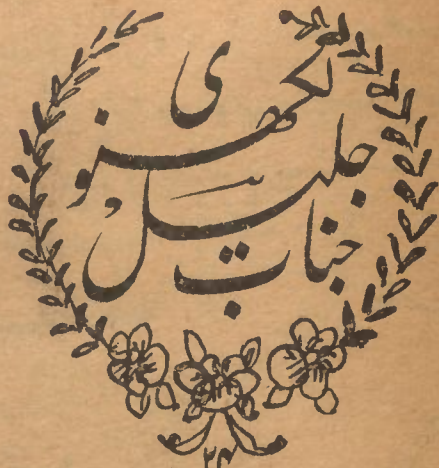 جناب
جلیل
لکھنوی
۲۴